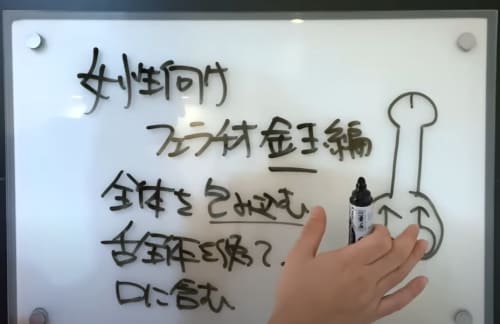 女性向け
フェラチオ 金玉編
全体を包み込む
舌全体を使って、
口に含む